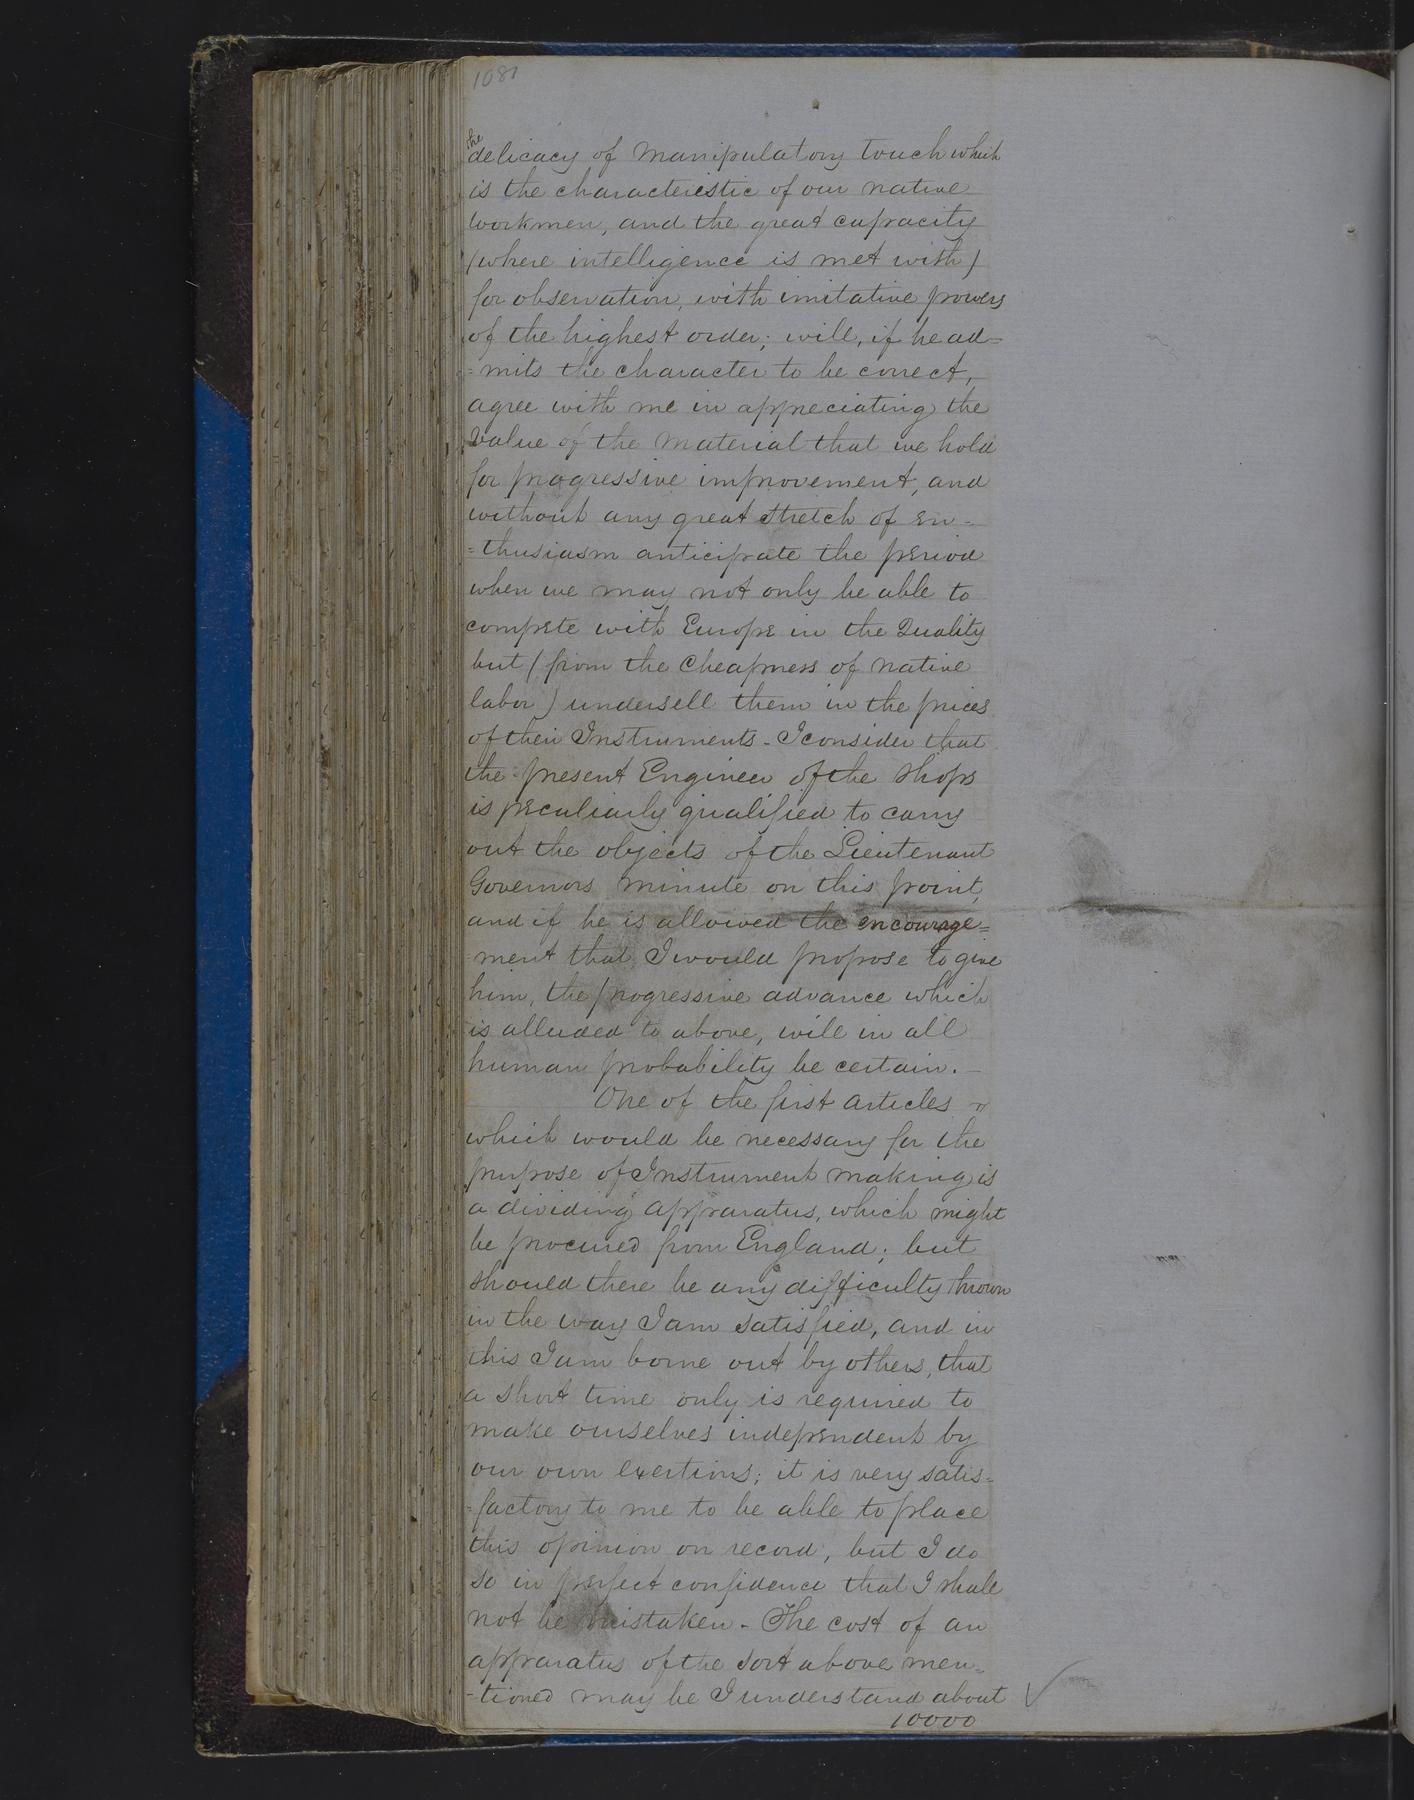 1081
the
delicacy of Manipulatory touch which
is the characteristic of our native
workmen, and the great capacity
(where intelligence is met with)
for observation, with imitative powers
of the highest order; will, if he ad=
=mits the character to be correct,
agree with me in appreciating the
value of the material that we hold
for progressive improvement, and
without any great stretch of en-
=thusiasm anticipate the period
when we may not only be able to
compete with Europe in the Quality
but (from the Cheapness of native
labor) undersell them in the prices
of their Instruments - I consider that
the present Engineer of the shops
is peculiarly qualified to carry
out the objects of the Lieutenant
Governors minute on this point,
and if he is allowed the encourage=
=ment that I would propose to give
him, the progressive advance which
is alluded to above, will in all
human probability be certain. -
One of the first articles
which would be necessary for the
purpose of Instrument making is
a dividing apparatus, which might
be procured from England; but
should there be any difficulty thrown
in the way I am satisfied, and in
this I am borne out by others, that
a short time only is required to
make ourselves independent by
our own exertions; it is very satis-
=factory to me to be able to place
this opinion on record, but I do
so in perfect confidence that I shall
not be mistaken - The cost of an
apparatus of the sort above men-
-tioned may be I understand about
10000